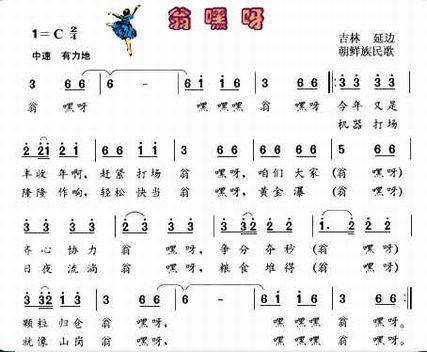 翁嘿呀
1=C 2/4
吉林 延边
中速 有力地
朝鲜族民歌
3 6 6 6 - 6 i i 6 3 6 6 3 3 3 3
翁 嘿呀 嘿嘿嘿 翁 嘿呀) 今年 又是
机器 打场
2 2i 2 i 6 6 i i 3 6 6 i i i i 5 6 6
丰收 年啊, 赶紧 打场 翁 嘿呀, 咱们 大家 (翁 嘿呀)
隆隆 作响, 轻松 快当 翁 嘿呀, 黄金 瀑 (翁 嘿呀)
3 3 3 3 2 3 3 3 3 32 2 2 1. 2 2 2
齐心 协力 翁 嘿呀, 争分 夺秒 (翁 嘿呀)
日夜 流淌 翁 嘿呀, 粮食 堆得 (翁 嘿呀)
3 32 i 3 i 6 6 6 - 6 i i i 3 6 6
颗粒 归仓 翁 嘿呀, 嘿嘿嘿 翁 嘿呀。
就像 山岗 翁 嘿呀, 嘿嘿嘿 翁 嘿呀。